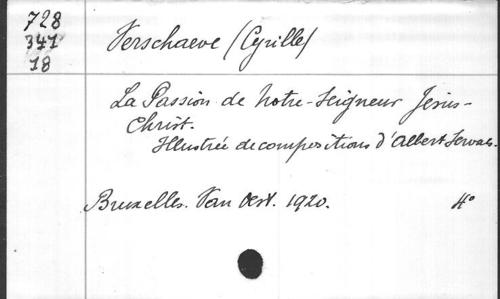 728
341
18
Verschaeve (Cyrille)
La Passion de Notre-Seigneur Jésus-
Christ.
Illustrée de compositions d'Albert Servaes.
Bruxelles. Van Oest. 1920. 4°